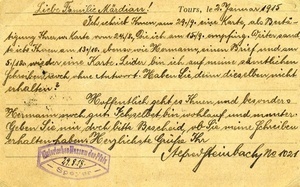 Liebe Familie Mardian! Tours, le 2. Januar 1915
Ich schrieb Ihnen am 24/9. eine Karte, als Bestä-
tigung Ihrer Karte vom 24./8, die ich am 15/9. empfing. Weiter sand-
te ich Ihnen am 13/10. ebenso, wie Hermann, einen Brief, und am
5/12. wieder eine Karte. Leider bin ich auf meine sämtlichen
Schreiben noch ohne Antwort. Haben Sie denn dieselben nicht
erhalten?
Hoffentlich geht es Ihnen und besonders
Hermann noch gut. Ich selbst bin wohlauf und munter.
Geben Sie mir doch bitte Bescheid, ob Sie meine Schreiben
erhalten haben. Herzlichste Grüße Ihr
Steinbach No 1021
Speyer